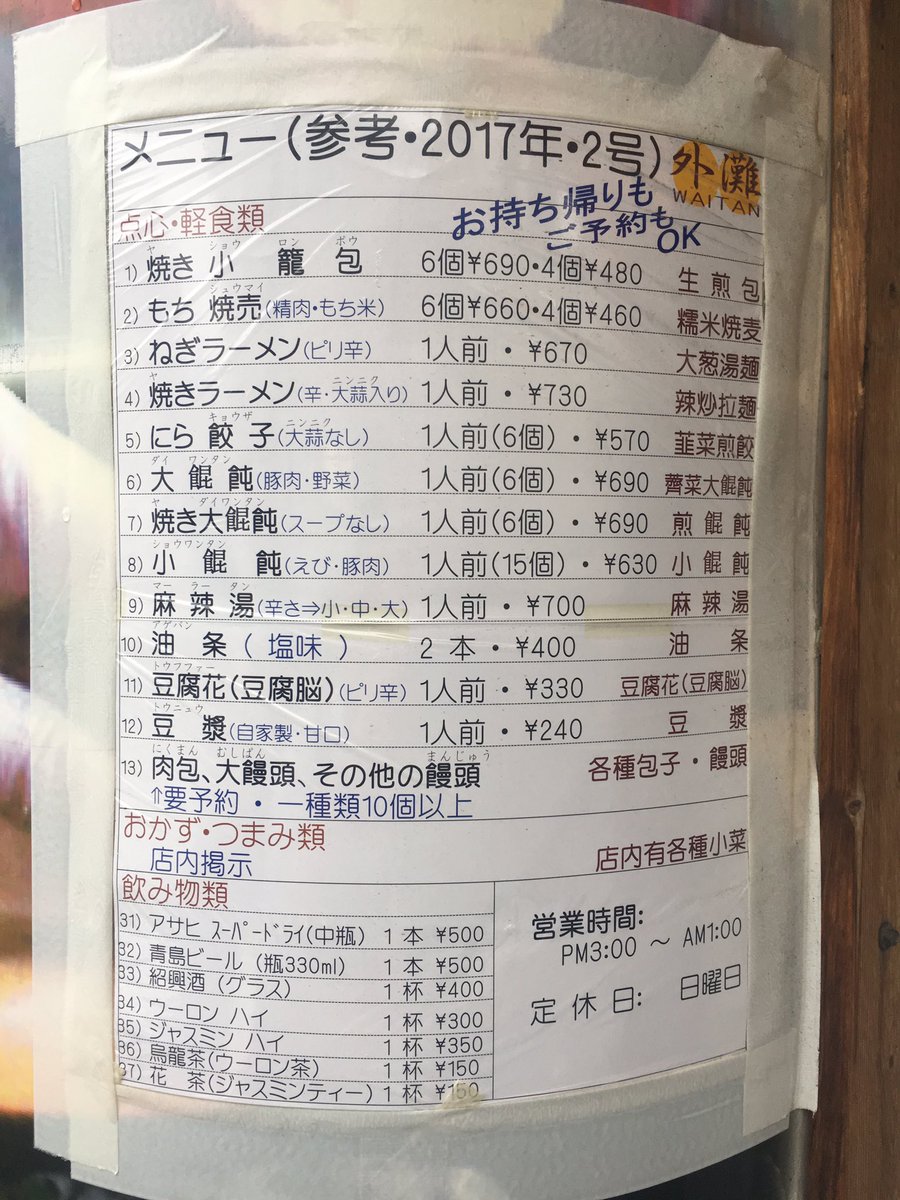 メニュー(参考・2017年・2号)
外灘
WAITAN
点心・軽食類
お持ち帰りも
ご予約も
OK
ヤ ショウ ロン ポウ
1) 焼き 小 籠 包 6個¥690・4個¥480 生煎包
シュウマイ
2) もち 焼売(精肉・もち米) 6個¥660・4個¥460 糯米焼麦
3) ねぎラーメン(ピリ辛) 1人前 ・ ¥670 大葱湯麺
ヤ ニンニク
4) 焼きラーメン(辛・大蒜入り) 1人前 ・ ¥730 辣炒拉麺
キョウザ ニンニク
5) にら 餃 子(大蒜なし) 1人前(6個)・¥570 韮菜煎餃
ダイ ワンタン
6) 大 餛 飩(豚肉・野菜) 1人前(6個)・¥690 薺菜大餛飩
ヤ ダイワンタン
7) 焼き大餛飩(スープなし) 1人前(6個)・¥690 煎 餛 飩
ショウワンタン
8) 小 餛 飩(えび・豚肉) 1人前(15個)・¥630 小 餛 飩
マー ラー タン
9) 麻 辣 湯(辛さ⇒小・中・大) 1人前 ・ ¥700 麻 辣 湯
アゲパン
10) 油 条( 塩味 ) 2 本 ・ ¥400 油 条
トウフファー
11) 豆腐花(豆腐脳)(ピリ辛) 1人前 ・ ¥330 豆腐花(豆腐脳)
トウニュウ
12) 豆 漿(自家製・甘口) 1人前 ・ ¥240 豆 漿
にくまん むしぱん まんじゅう
13) 肉包、大饅頭、その他の饅頭 各種包子・饅頭
⇑要予約 ・ 一種類10個以上
おかず・つまみ類
店内掲示 店内有各種小菜
飲み物類
31) アサヒ スーパードライ(中瓶) 1 本 ¥500
32) 青島ビール (瓶330ml) 1 本 ¥500
33) 紹興酒 (グラス) 1 杯 ¥400
34) ウーロン ハイ 1 杯 ¥300
35) ジャスミン ハイ 1 杯 ¥350
36) 烏龍茶(ウーロン茶) 1 杯 ¥150
37) 花 茶(ジャスミンティー) 1 杯 ¥150
営業時間:
PM3:00 ～ AM1:00
定 休 日: 日曜日